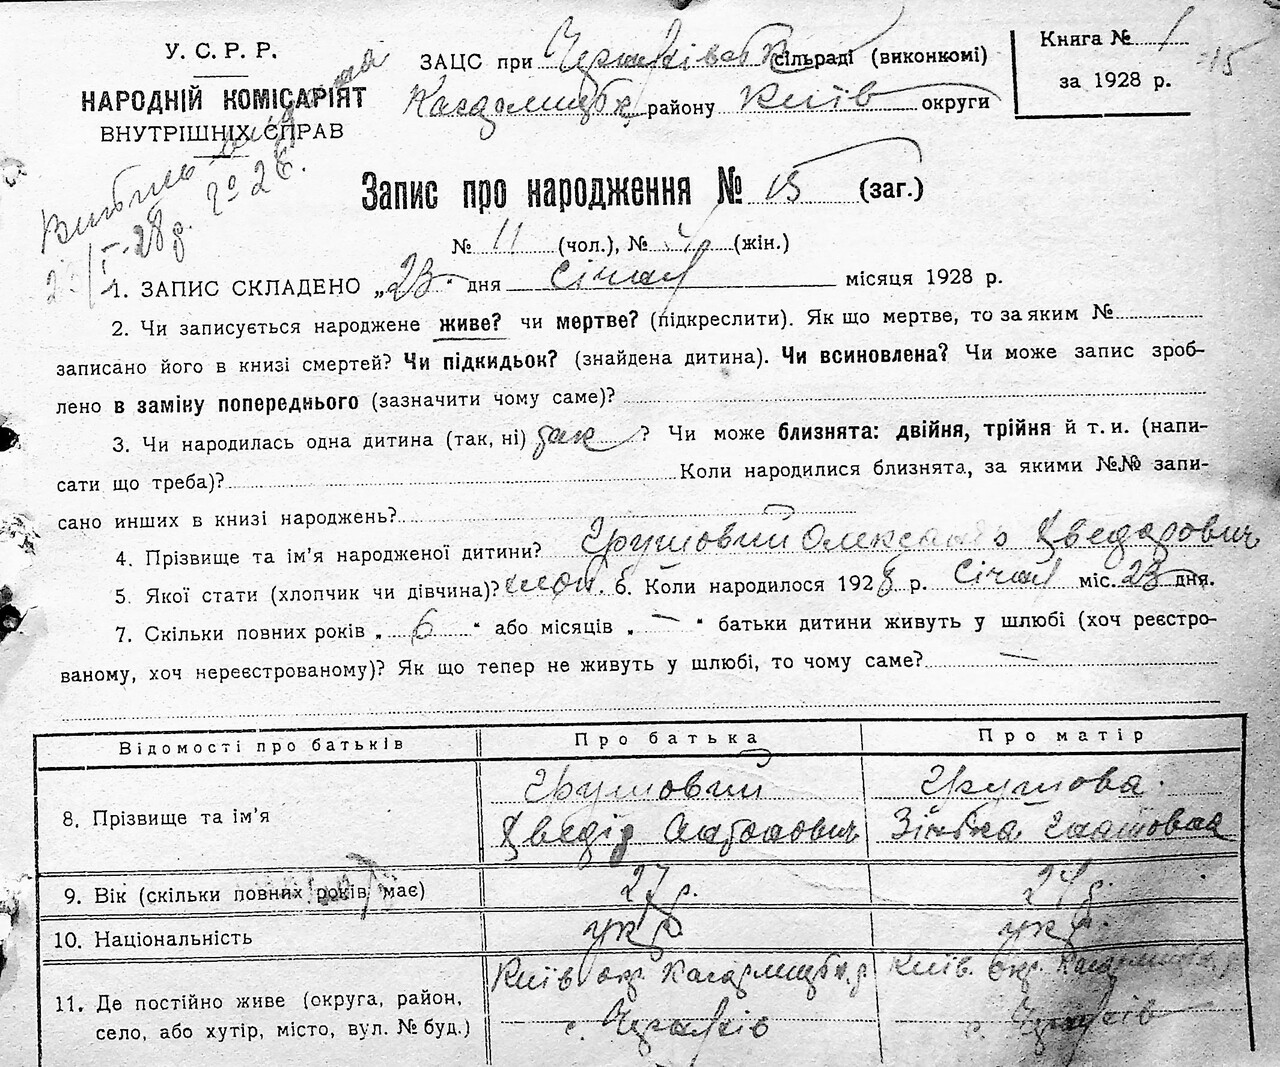 У. С. Р. Р.
НАРОДНІЙ КОМІСАРІЯТ
ВНУТРІШНІХ СПРАВ
ЗАЦС при сільраді (виконкомі)
району Київ округи
Книга № 1
за 1928 р.
15
Запис про народження № 15 (заг.)
№ 11 (чол.), № 4 (жін.)
1. ЗАПИС СКЛАДЕНО „23" дня січня місяця 1928 р.
2. Чи записується народжене живе? чи мертве? (підкреслити). Як що мертве, то за яким №
записано його в книзі смертей? Чи підкидьок? (знайдена дитина). Чи всиновлена? Чи може запис зроб-
лено в заміку попереднього (зазначити чому саме)?
3. Чи народилась одна дитина (так, ні) так? Чи може близнята: двійня, трійня й т. и. (напи-
сати що треба)? Коли народилися близнята, за якими №№ запи-
сано инших в книзі народжень?
4. Прізвище та ім'я народженої дитини? Грушовий Олександр Хведорович
5. Якої стати (хлопчик чи дівчина)? хлоп. 6. Коли народилося 1928 р. Січня міс. 23 дня.
7. Скільки повних років „ 6 " або місяців „ — " батьки дитини живуть у шлюбі (хоч реєстро-
ваному, хоч нереєстрованому)? Як що тепер не живуть у шлюбі, то чому саме? —
Відомості про батьків Про батька Про матір
8. Прізвище та ім'я Грушовий Грушова
Хведір Зінька
9. Вік (скільки повних років має) 27 р. 24 р.
10. Національність укр укр
11. Де постійно живе (округа, район,
село, або хутір, місто, вул. № буд.)
Київ окр. Київ. окр.
с. с.